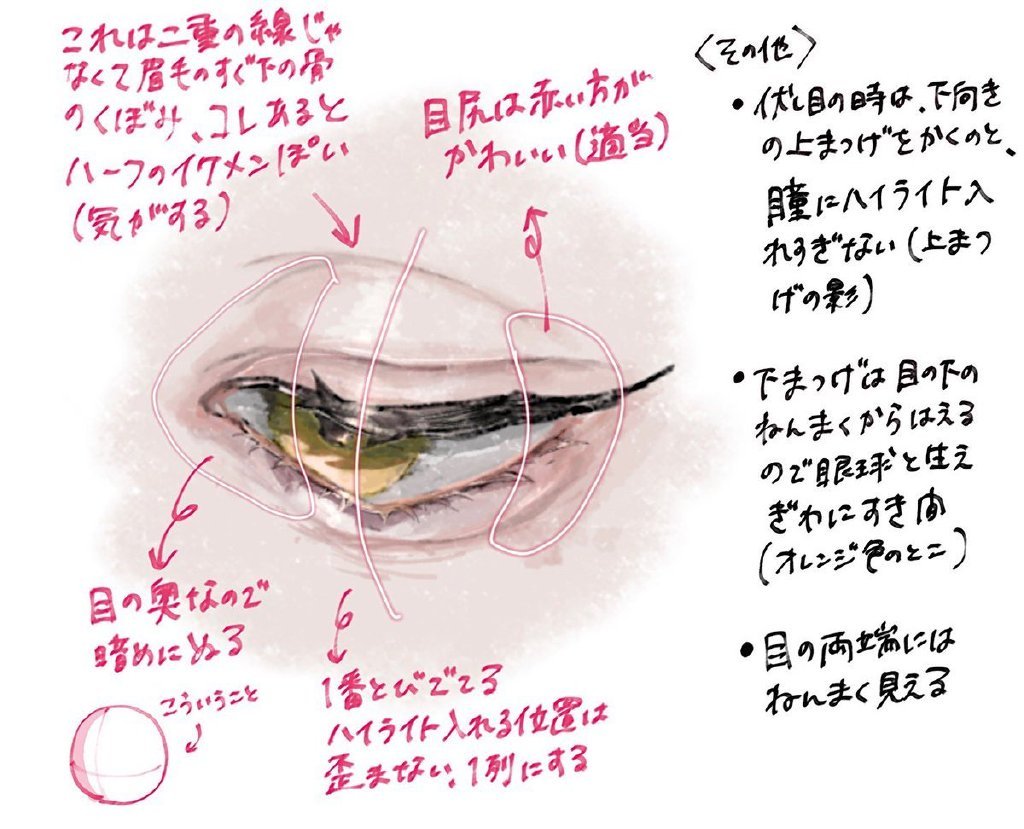 これは二重の線じゃ
なくて眉毛のすぐ下の骨
のくぼみ、コレあると
ハーフのイケメンぽい
(気がする)
目尻は赤い方が
かわいい(適当)
目の奥なので
暗めにぬる
こういうこと
1番とびでてる
ハイライト入れる位置は
歪まない、1列にする
〈その他〉
・伏し目の時は、下向き
の上まつげをかくのと、
瞳にハイライト入
れすぎない(上まつ
げの影)
・下まつげは目の下の
ねんまくからはえる
ので眼球と生え
ぎわにすき間
(オレンジ色のとこ)
・目の両端には
ねんまく見える